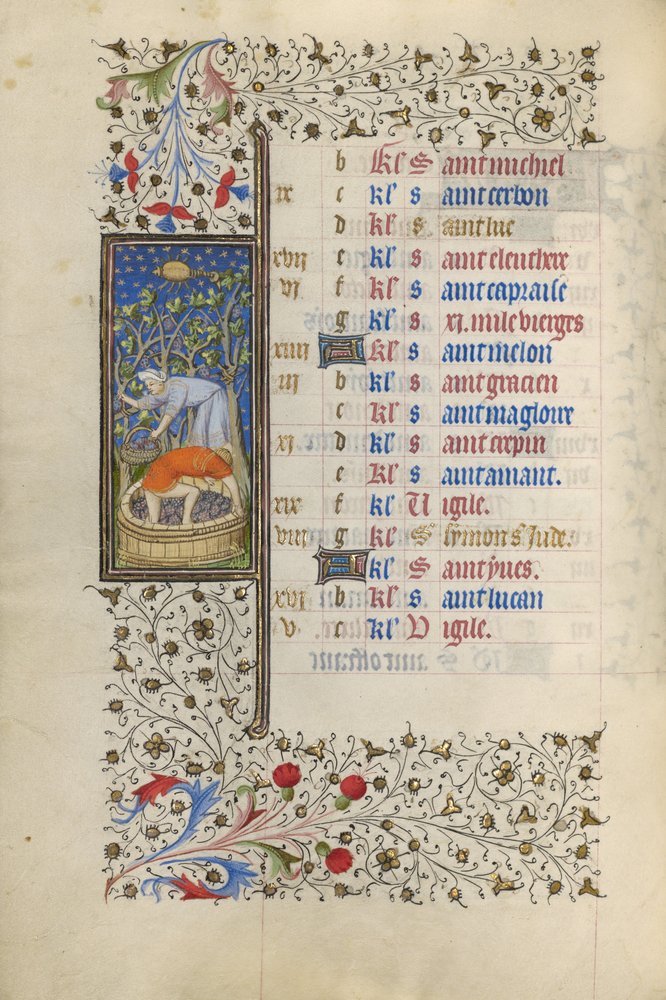 b kl' S aint michiel
ix c kl' s aint cerbon
d kl' s aint luc
xvii e kl' s aint eleuthere
vi f kl' s aint capraise
g kl' s xi. mile vierges
xiiii A kl' s aint melon
iii b kl' s aint gracien
c kl' s aint magloire
xi d kl' s aint crepin
e kl' s aint amant.
xix f kl' U igile.
viii g kl' S' symon s' Jude.
A kl' S aint yues.
xvi b kl' s aint lucan
v c kl' V igile.